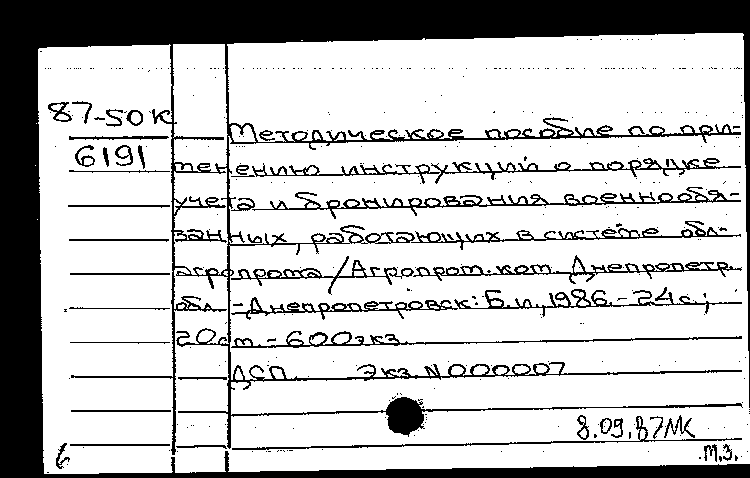 87-50К
6191
Методическое пособие по при-
менению инструкции о порядке
учета и бронирования военнообя-
занных, работающих в системе обл-
агропрома / Агропром. ком. Днепропетр.
обл. - Днепропетровск: Б.и., 1986. - 24 с.;
20 см. - 600 экз.
ДСП. Экз. N 000007
8.09.87 МК
м.з.
б